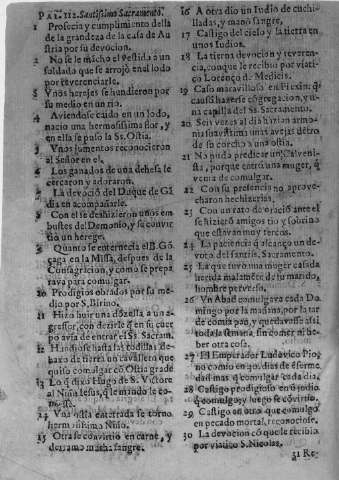 PAL. III. Santissimo Sacramento.
1 Profecia y cumplimiento della
de la grandeza de la casa de Au
stria por su deuocion.
2 No se le macho el vestido a vn
soldado que se arrojò en el lodo
por reuerenciarle.
3 Vnos herejes se hundieron por
su medio en vn rio.
4 Auiendose caido en vn lodo,
nacio vna hermosissima flor, y
en ella se puso la SS. Ostia.
5 Vnos jumentos reconocieron
al Señor en el.
6 Los ganados de vna dehesa le
cercaron y adoraron.
7 La deuociõ del Duque de Gã
dia en acompañarle.
8 Con el se deshizieron vnos em
bustes del Demonio, y se conuir
tiò vn herege.
9 Quanto se enternecia el B. Gõ
çaga en la Missa, despues de la
Consagracion, y como se prepa
raua para comulgar.
10 Prodigios obrados por su me
dio por S. Birino.
11 Hizo huir vna dõzella a vn a-
gressor, con dezirle que en su cuer
po auia de entrar el SS. Sacram.
12 Hundiose hasta las rodillas de-
baxo de tierra vn cauallero que
quiso comulgar cõ Ostia grade
13 Lo q̃ dixo Hugo de S. Victore
al Niño Iesus, q̃ le mando le co-
miesse.
14 Vna ostia enterrada se torno
hermosissimo Niño.
15 Otra se conuirtio en carne, y
derramo mucha sangre.
16 A otra dio vn Iudio de cuchi-
lladas, y manò sangre.
17 Castigo del cielo y la tierra en
vnos Iudios.
18 La tierna deuocion y reueren-
cia, conque le recibio por viati-
co Lorenço de Medicis.
19 Caso marauilloso en
causò hazerse cõgregacion, y v-
na capilla del SS. Sacramento.
20 Seis vezes al dia hazian armo-
nia suauissima vnas auejas dẽtro
de su corcho a vna ostia.
21 No pudo predicar vn Caluenis-
ta, porque entrò vna muger, q̃
venia de comulgar.
22 Con su presencia no aproue-
charon hechizerias.
23 Con vn rato de oraciõ ante el
se hizierõ amigos tio y sobrino
que estauan muy tercos.
24 La paciencia q̃ alcanço vn de-
uoto del santis. Sacramento.
25 La que tuuo vna muger casada
herida malamẽte de su marido,
hombre peruerso.
26 Vn Abad comulgaua cada Do
mingo por la mañana, por la tar
de comia pan, y quedauasse asi
toda la semana, sin comer ni be-
ber otra cosa.
27 El Emperador Ludouico Pio,
no comio en 40. dias de ẽferme
dad mas q̃ comulgar cada dia.
28 Castigo prodigioso en vn judio
q̃ comulgo, y luego se cõuirtio.
29 Castigo en otro que comulgo
en pecado mortal, reconociose.
30 La deuociõ con que le recibio
por viatico S. Nicolas.
31 Re-